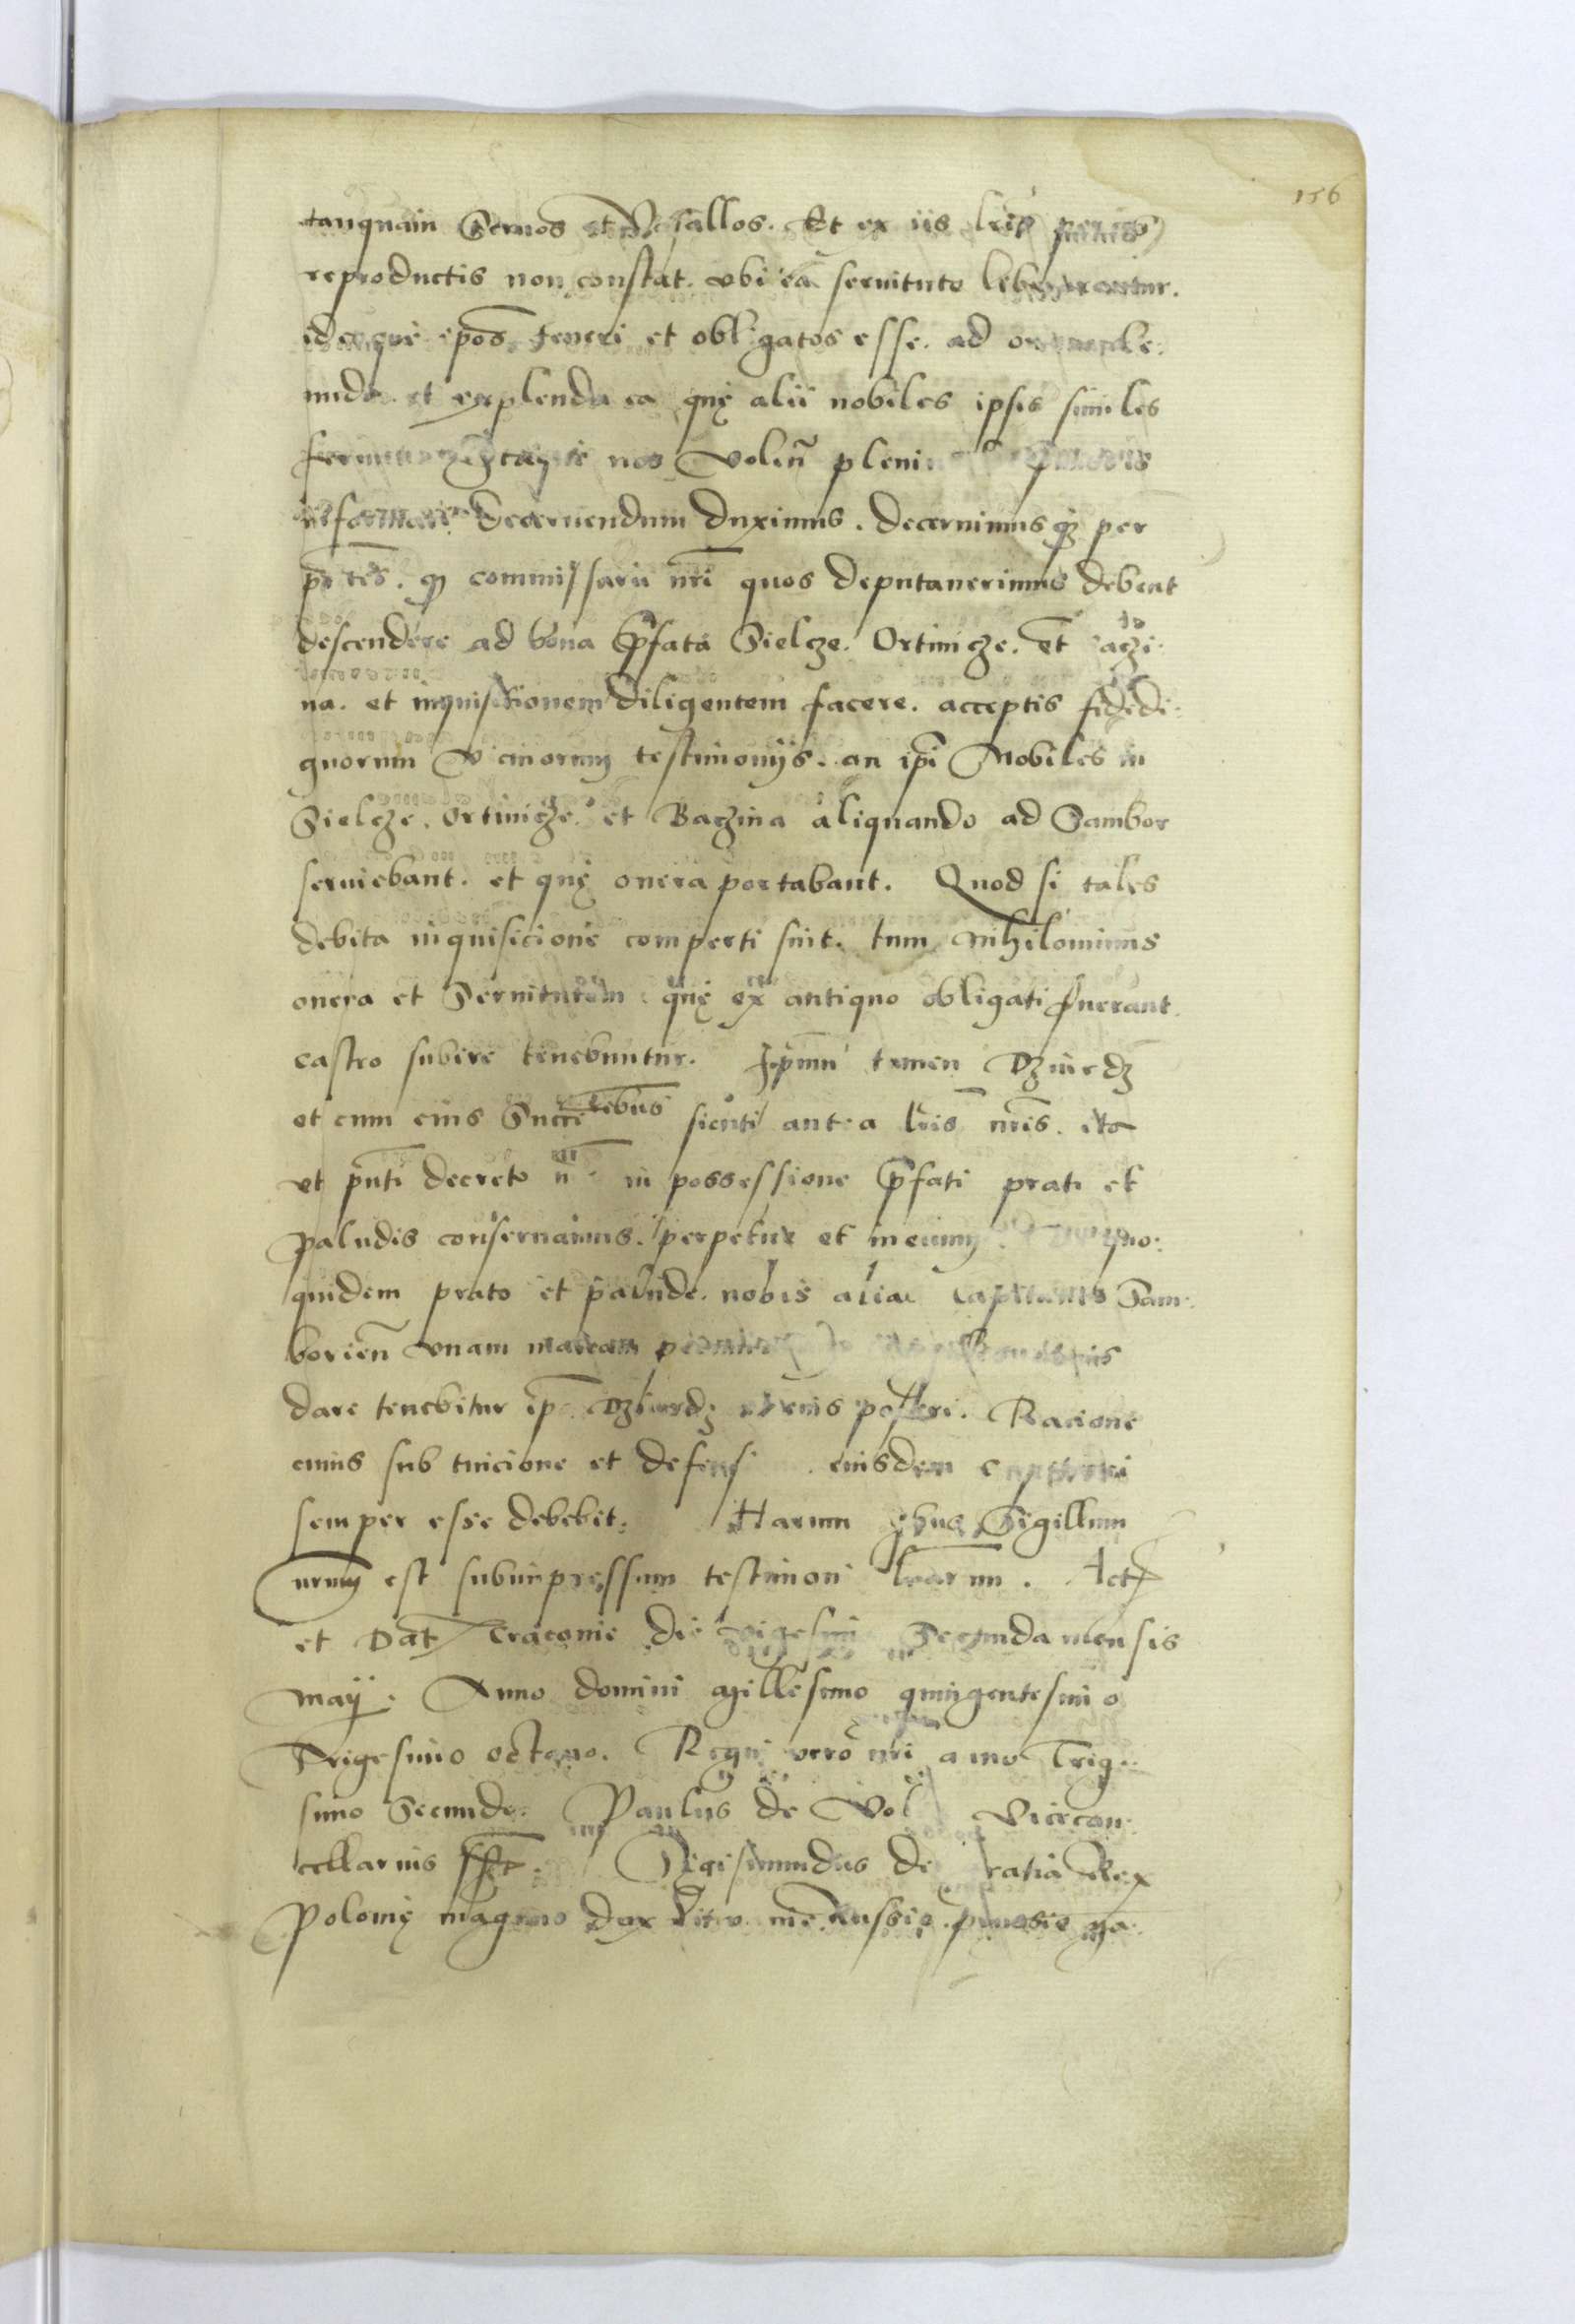 156
tanquam Servos et Vasallos. Et ex iis lris
reproductis non constat. vbi ea servitute liberarentur.
ideoque ipos teneri et obligatos esse. ad
enda. et explenda ea quę alii nobiles ipsis similes
nos volen pleni
informari decernendum duximus. decernimusq3 per
pntes. qz commissarii nri quos deputaverimus debent
descendere ad bona pfata Sielcze. Ortinicze. et
na. et inquisitionem diligentem facere. acceptis fidedi:
gnorum vicinorum testimonijs. an ipi Nobiles in
Sielcze. Ortinicze. et Baczina aliquando ad Sambor
serviebant. et quę onera portabant. Quod si tales
debita inquisicione comperti sint. tum nihilominus
onera et Servitutem quę ex antiquo obligati fuerant
castro subire tenebuntur. Ipmm tamen Dziurdz
et cum eius Succribus sicuti antea lris nris. ita
et pnti decreto n in possessione pfati prati et
paludis conservamus. perpetue et in eium quo:
quidem prato et palude. nobis alias Capitaneis Sam:
borien vnam marcam
dare tenebitur ip Dziurdz eius posteri. Racione
cuius sub tuicione et defens eiusdem Capitanei
semper esse debebit. Harum qbus Sigillum
nrum est subimpressum testimoni lrarum. Act
et Dat Cracovie die vigesim Secunda mensis
maij. Anno domini millesimo quingentesimo
Trigesimo octavo. Regni vero nri anno Trig:
simo Secundo. Paulus de Vol Vicecan:
cellarius sspt. Sigismundus de ratia Rex
Polonię magnus dux Litw. nec Russię. prussię ma: